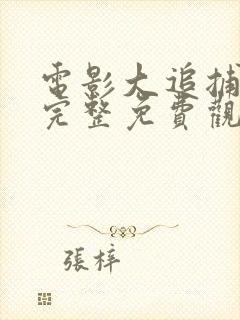 電影大追捕
完整免費觀
張梓